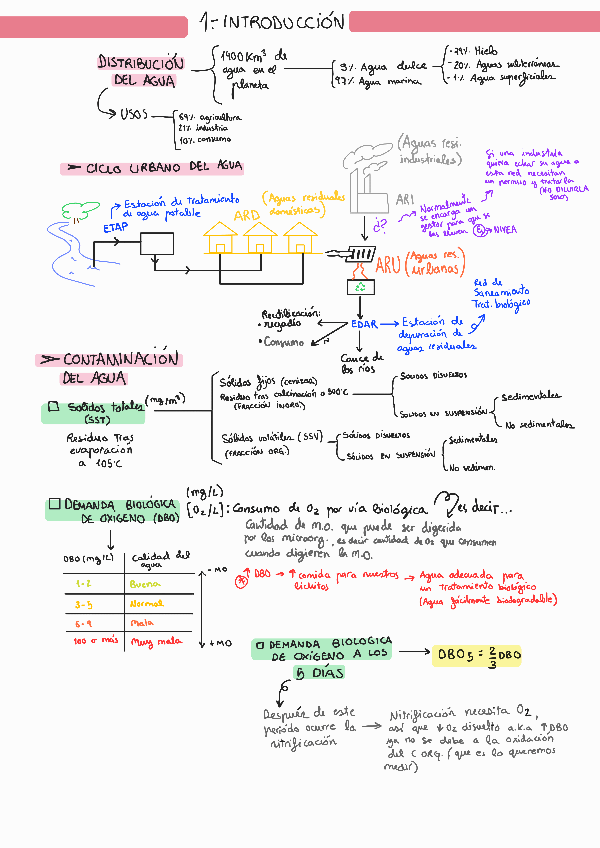 1- INTRODUCCIÓN
DISTRIBUCIÓN
DEL AGUA
1400 Km³ de
agua en el
planeta
3% Agua dulce
97% Agua marina
- 79% Hielo
- 20% Aguas subterráneas
- 1% Agua superficiales
USOS
69% agricultura
21% industria
10% consumo
➤ CICLO URBANO DEL AGUA
Estación de tratamiento
de agua potable
ETAP
(Aguas residuales
domésticas)
ARD
(Aguas resi.
industriales)
ARI
Si una industria
quiere echar su agua a
esta red necesitan
un permiso y tratarla
(NO DILUIRLA
SOLO)
¿?
Normalmente
se encarga un
gestor para que se
las lleven
NIVEA
ARU (Aguas res.
urbanas)
Reutilización:
• regadío
• Consumo
N
EDAR
Estación de
depuración de
aguas residuales
Red de
Saneamiento
Trat. biológico
Cauce de
los ríos
➤ CONTAMINACIÓN
DEL AGUA
Sólidos totales (mg/m³)
(SST)
Residuo tras
evaporación
a 105°C
Sólidos fijos (cenizas)
Residuo tras calcinación a 500°C
(FRACCIÓN INORG.)
SOLIDOS DISUELTOS
SOLIDOS EN SUSPENSIÓN
Sedimentales
No sedimentales
Sólidos volátiles (SSV)
(FRACCIÓN ORG.)
SÓLIDOS DISUELTOS
SÓLIDOS EN SUSPENSIÓN
Sedimentales
No sedimen.
DEMANDA BIOLÓGICA
DE OXIGENO (DBO)
(mg/L)
[O₂/L]: Consumo de O₂ por vía biológica
es decir...
Cantidad de M.O. que puede ser digerida
por los microorg., es decir cantidad de O₂ que consumen
cuando digieren la M.O.
DBO (mg/L) Calidad del
agua
1-2 Buena
3-5 Normal
6-9 Mala
100 o más Muy mala
- MO
+ MO
↑ DBO → ↑ comida para nuestros
bichitos
→ Agua adecuada para
un tratamiento biológico
(Agua fácilmente biodegradable)
DEMANDA BIOLOGICA
DE OXÍGENO A LOS
5 DÍAS
DBO₅ = 2/3 DBO
Después de este
período ocurre la
nitrificación
Nitrificación necesita O₂,
así que ↓ O₂ disuelto a.k.a ↑ DBO
ya no se debe a la oxidación
del C ORG. (que es lo queremos
medir)